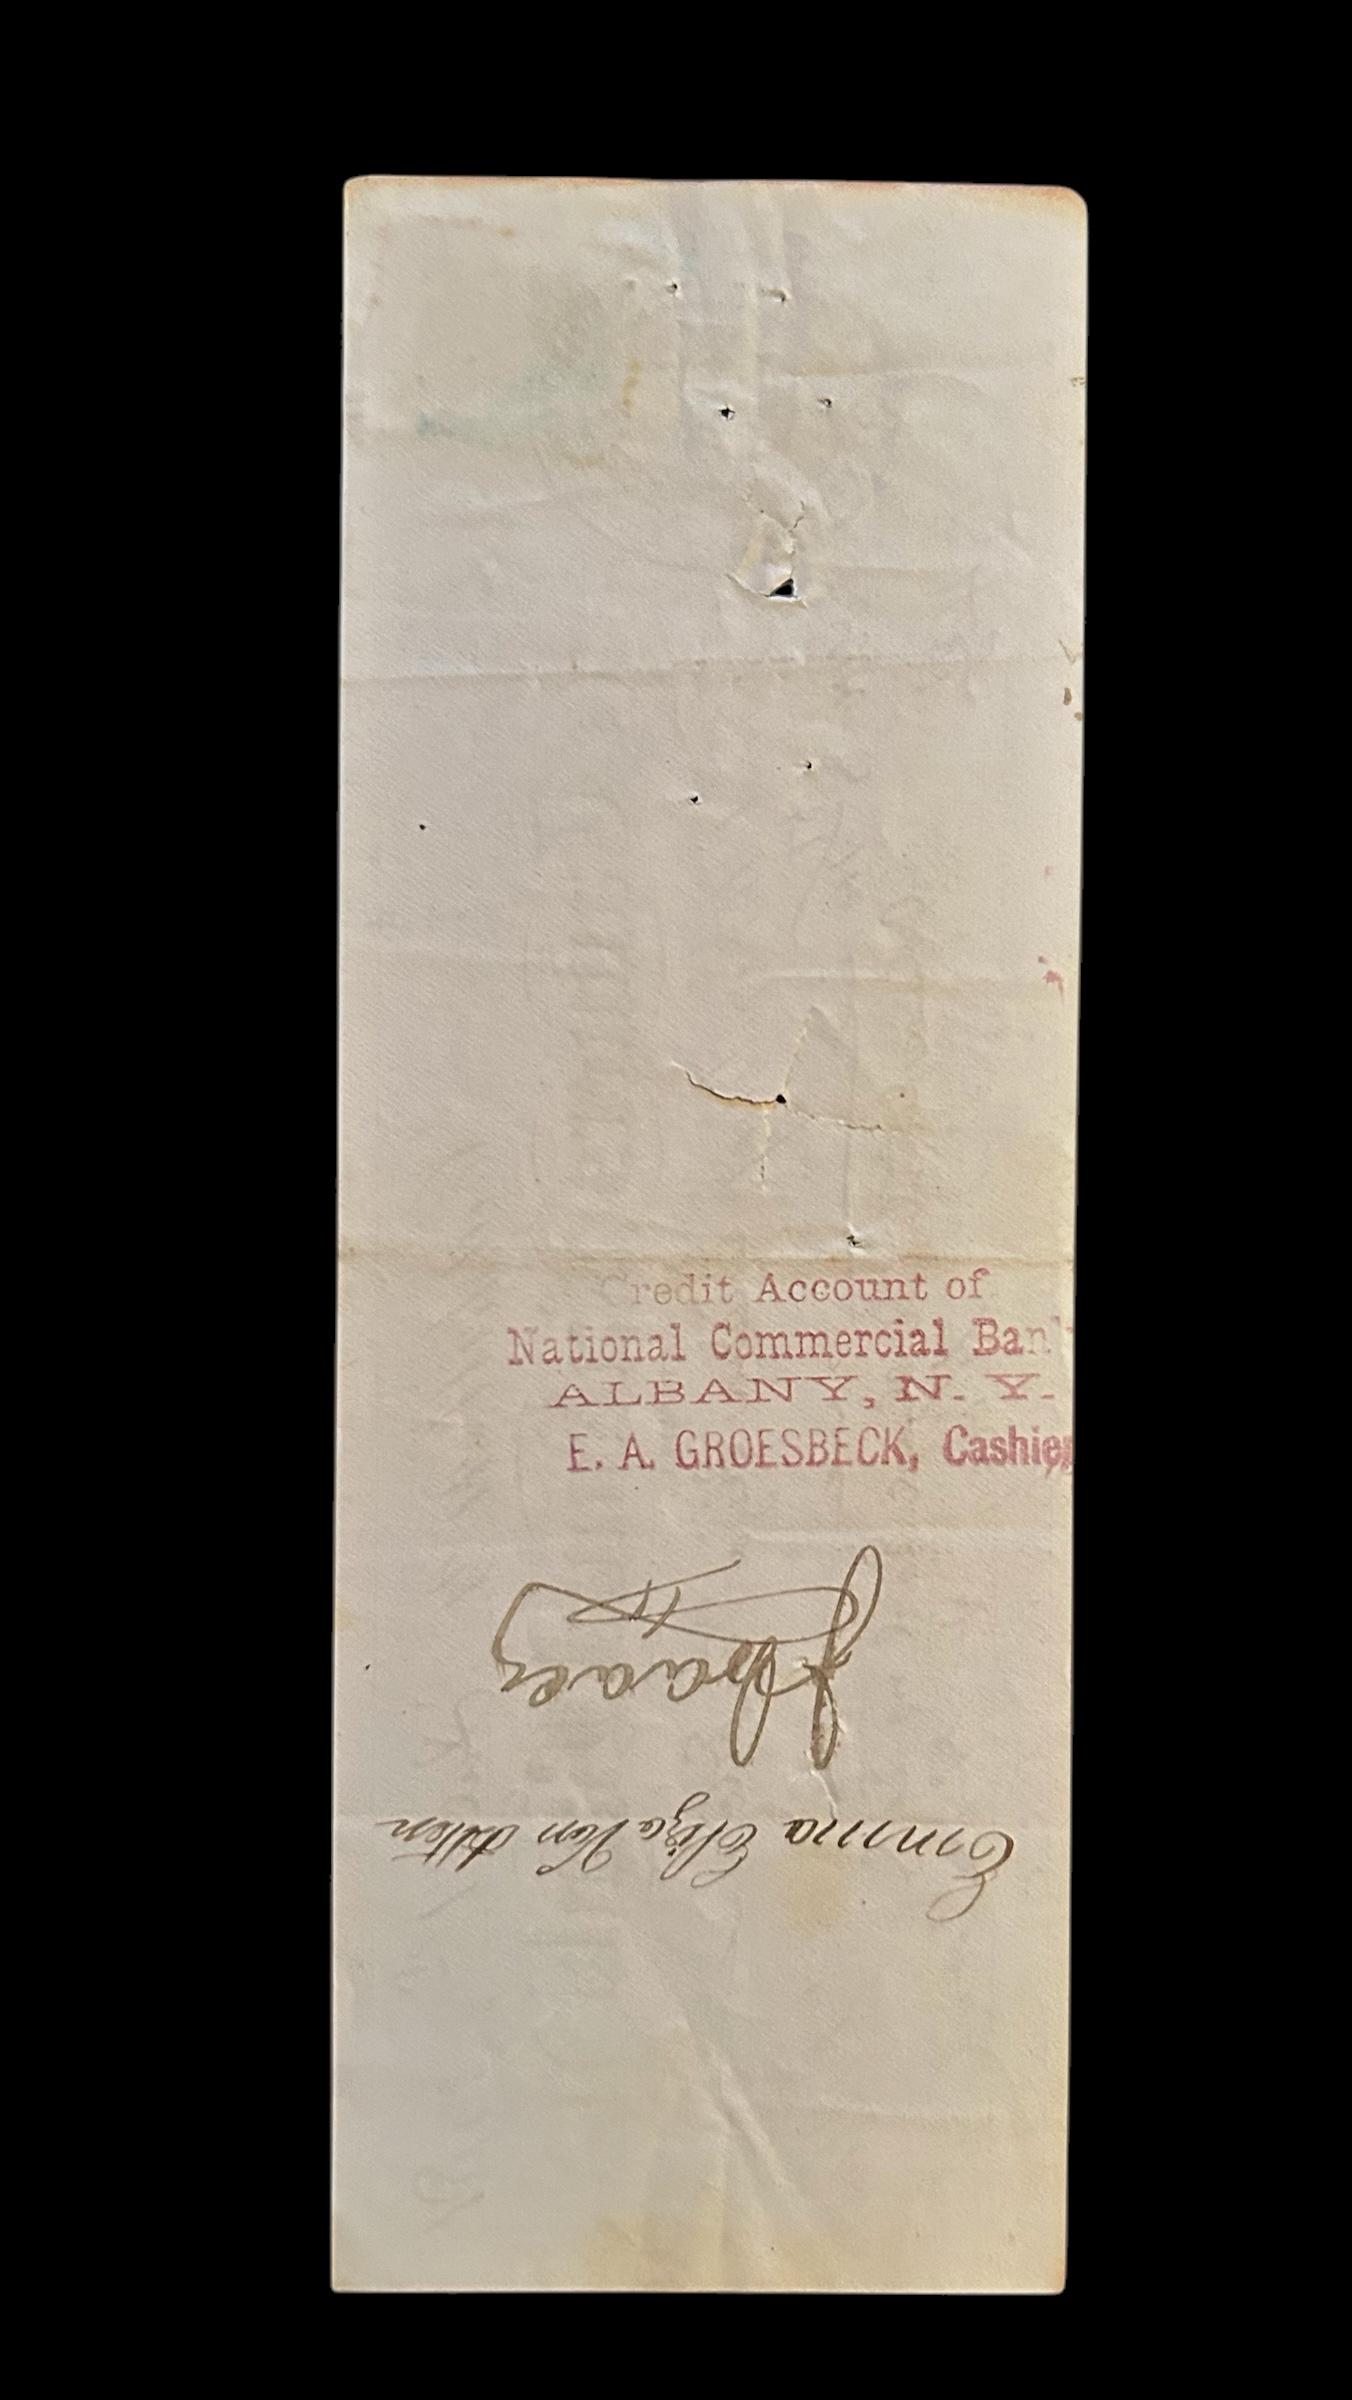 Credit Account of
National Commercial Bank
ALBANY, N. Y.
E. A. GROESBECK, Cashier
Emma Eliza Van Atten